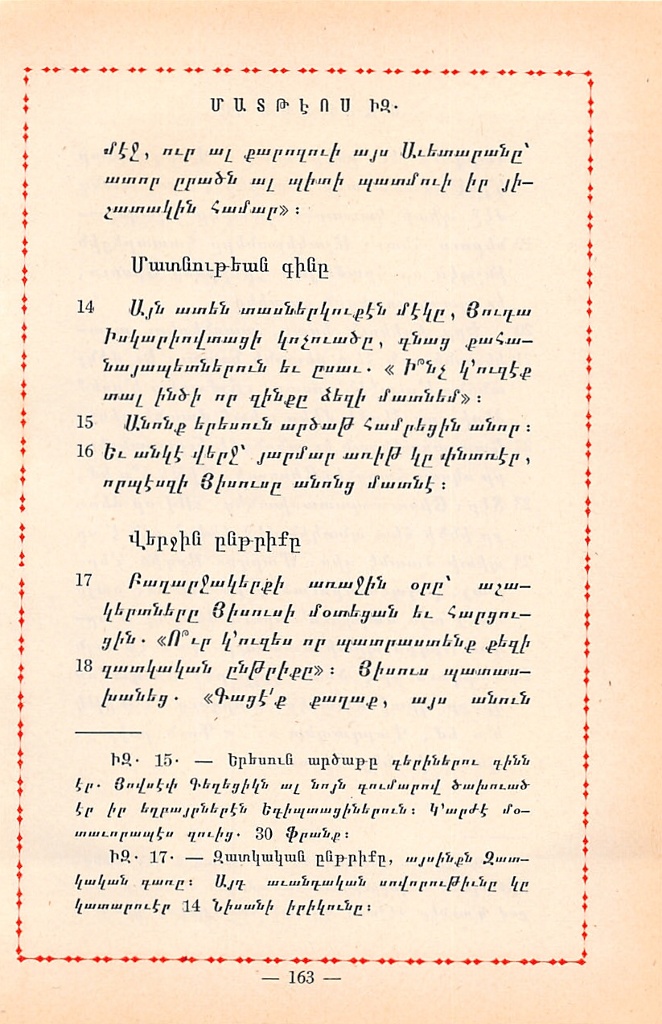 ՄԱՏԹԷՈՍ ԻԶ.
մէջ, ուր ալ քարոզուի այս Աւետարանը՝
ատոր ըրածն ալ պիտի պատմուի իր յի—
շատակին համար»։
Մատնութեան գինը
14 Այն ատեն տասներկուքէն մէկը, Յուդա
Իսկարիովտացի կոչուածը, գնաց քահա—
նայապետներուն եւ ըսաւ. « Ի՞նչ կ՚ուզէք
տալ ինծի որ զինքը ձեզի մատնեմ»։
15 Անոնք երեսուն արծաթ համրեցին անոր։
16 Եւ անկէ վերջ՝ յարմար առիթ կը փնտռէր,
որպէսզի Յիսուսը անոնց մատնէ։
Վերջին ընթրիքը
17 Բաղարջակերքի առաջին օրը՝ աշա—
կերտները Յիսուսի մօտեցան եւ հարցու—
ցին. «Ո՞ւր կ՚ուզես որ պատրաստենք քեզի
18 զատկական ընթրիքը»։ Յիսուս պատաս—
խանեց. «Գացէ՛ք քաղաք, այս անուն
ԻԶ. 15. — Երեսուն արծաթը գերիներու գինն
էր. Յովսէփ Գեղեցիկն ալ նոյն գումարով ծախուած
էր իր եղբայրներէն Եգիպտացիներուն։ Կ՚արժէ մօ—
տաւորապէս զուից. 30 ֆրանք։
ԻԶ. 17. — Զատկական ընթրիքը, այսինքն Զատ—
կական գառը։ Այդ աւանդական սովորութիւնը կը
կատարուէր 14 Նիսանի իրիկունը։
— 163 —